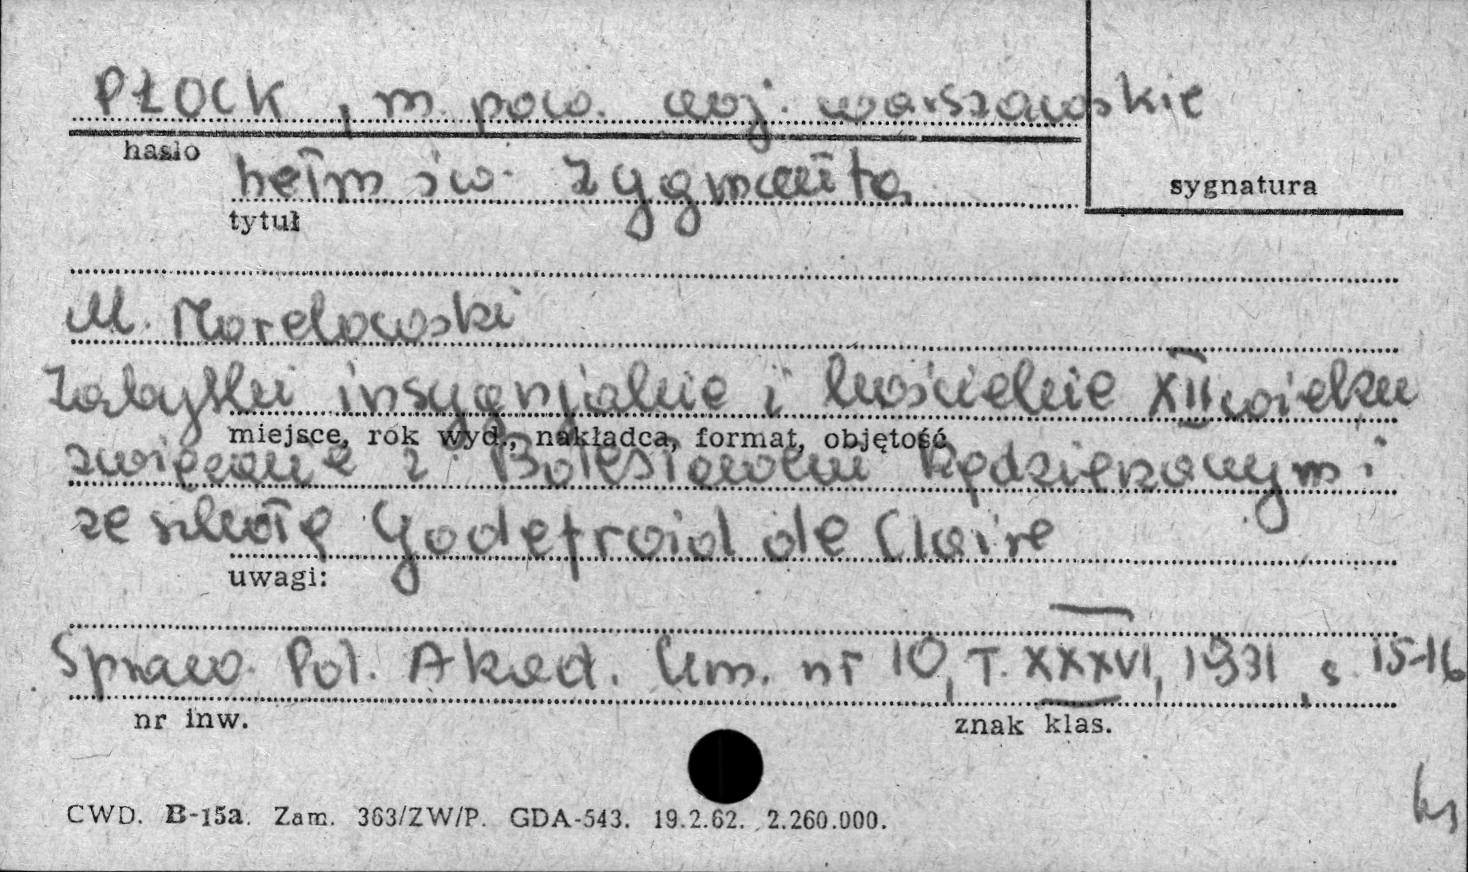 PŁOCK, m. pow. woj. warszawskie
hasło
hełm św. Zygmunta
sygnatura
tytuł
M. Morelowski
Zabytki insygnjalnie i kościelnie XII wieku
miejsce, rok wyd., nakładca, format, objętość
związane z Bolesławem Kędzierzawym i
ze szkołą Godefroid de Claire
uwagi:
Spraw. Pol. Akad. Um. nr 10, T. XXXVI, 1931, s. 15-16
nr inw.
znak klas.
CWD. B-15a. Zam. 363/ZW/P. GDA-543. 19.2.62. 2.260.000.